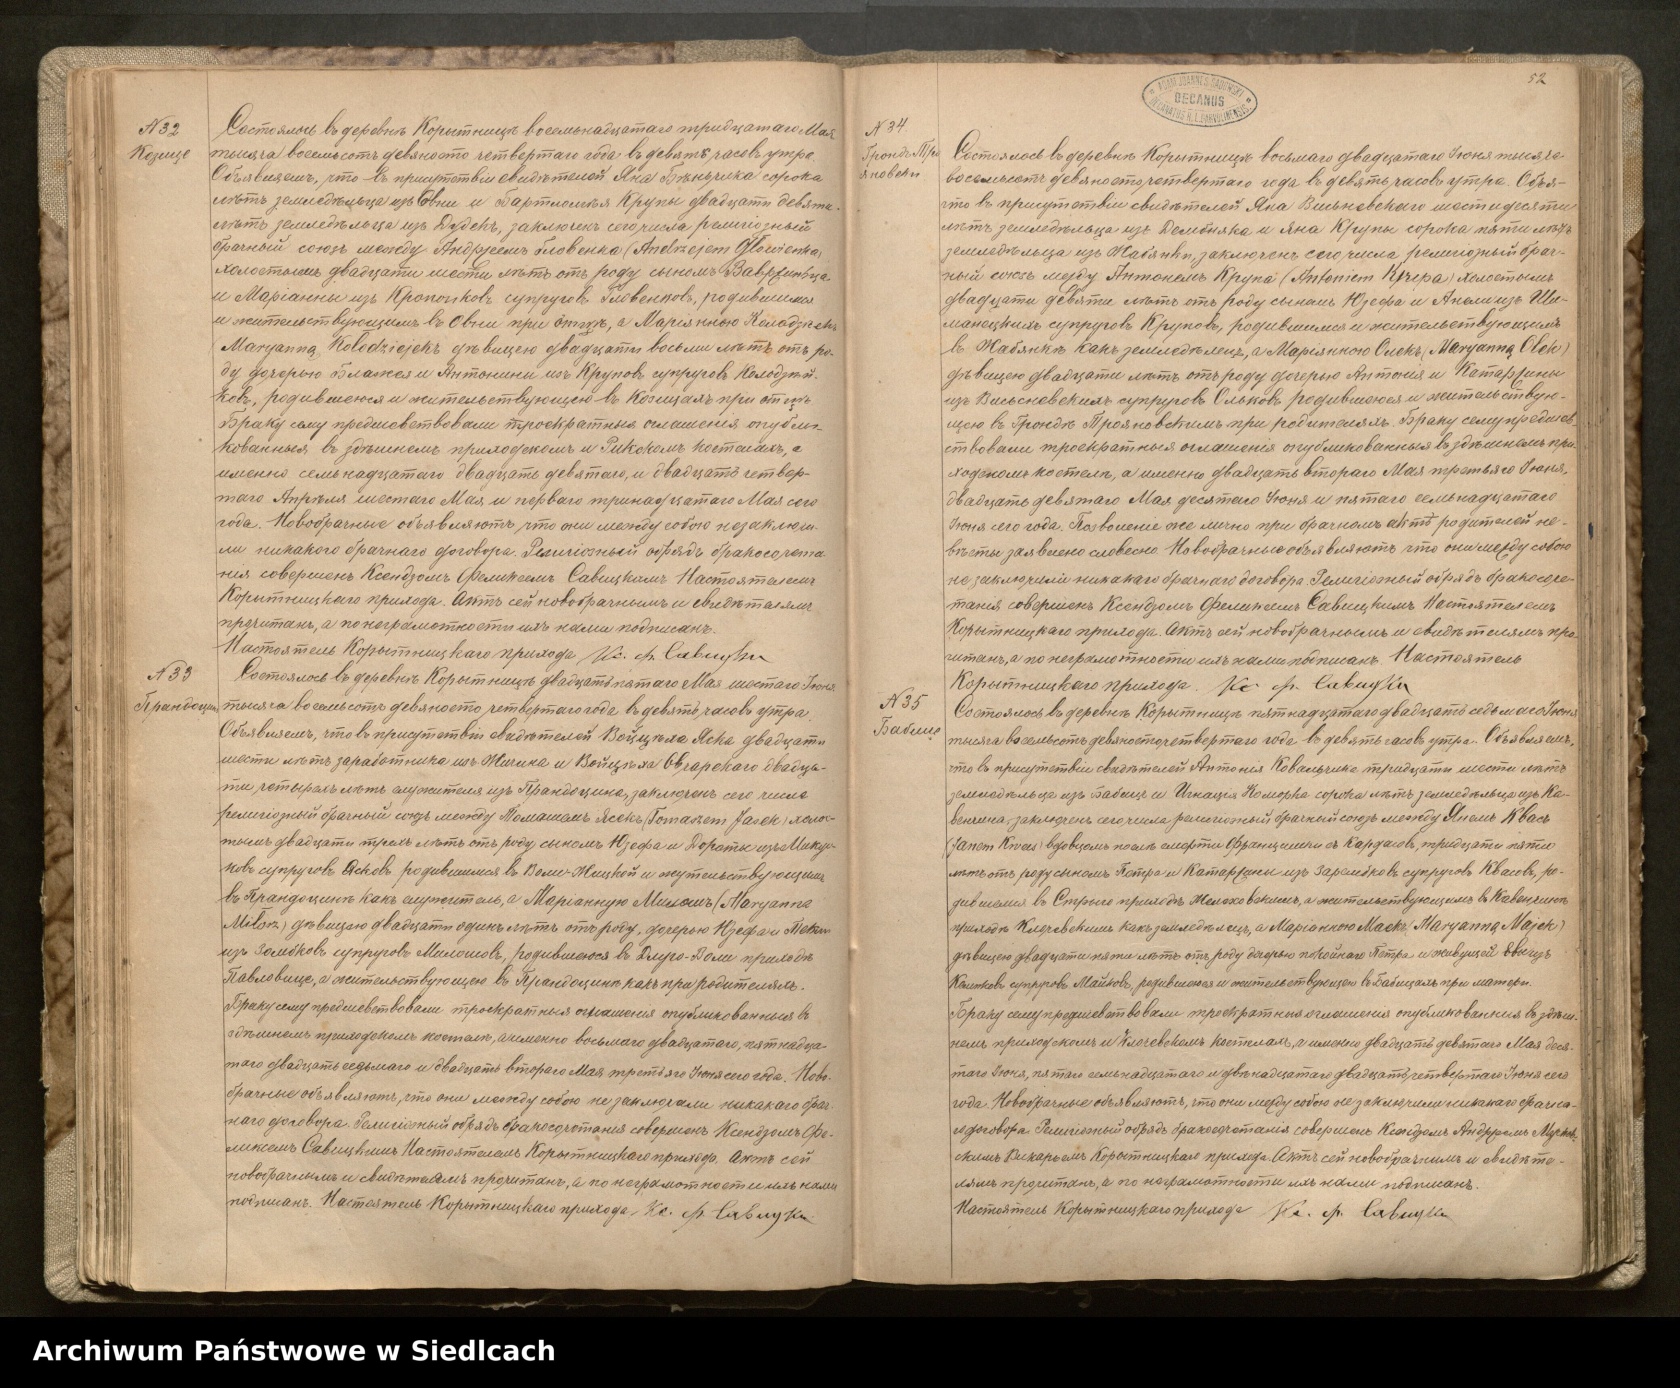 N 32
Козице
Состоялось въ деревнѣ Корытницѣ восемьнадцатаго тридцатаго Мая
тысяча восемьсотъ девяносто четвертаго года въ девять часовъ утра.
Объявляемъ, что въ присутствіи свидѣтелей Яна сорока
лѣтъ земледѣльца изъ Овни и Бартломѣя Крупы двадцати девяти
лѣтъ земледѣльца изъ Дудекъ, заключенъ сего числа религіозный
брачный союзъ между Андреемъ Гловенка (Andrzejem Głowienka)
холостымъ, двадцати шести лѣтъ отъ роду сыномъ Вавржинца
и Маріанны изъ супруговъ Гловенковъ, родившимся
и жительствующимъ въ Овни при отцѣ, а Маріянною Колодзѣекъ
(Maryanną Kołodziejek) дѣвицею двадцати восьми лѣтъ отъ ро-
ду дочерью Блажея и Антонины изъ Круповъ супруговъ Колодзѣй-
ковъ, родившеюся и жительствующею въ Козицахъ при отцѣ
Браку сему предшествовали троекратныя оглашенія опубли-
кованныя въ здѣшнемъ приходскомъ и Рикскомъ костелахъ, а
именно семьнадцатаго двадцать девятаго, и двадцать четвер-
таго Апрѣля шестаго Мая и перваго тринадцатаго Мая сего
года. Новобрачные объявляютъ, что они между собою незаключи-
ли никакого брачнаго договора. Религіозный обрядъ бракосочета
нія совершенъ Ксендзомъ Феликсомъ Савицкимъ Настоятелемъ
Корытницкаго прихода. Актъ сей новобрачнымъ и свидѣтелямъ
прочитанъ, а по неграмотности ихъ нами подписанъ.
Настоятель Корытницкаго прихода Кс. Ф. Савицки
N 33
Прандоцин
Состоялось въ деревнѣ Корытницѣ двадцать пятаго Мая шестаго Іюня
тысяча восемьсотъ девяносто четвертаго года въ девять часовъ утра.
Объявляемъ, что въ присутствіи свидѣтелей Войцѣха Яска двадцати
шести лѣтъ заработника изъ и Войцѣха Овчарскаго двадца-
ти четырехъ лѣтъ служителя изъ Прандоцина, заключенъ сего числа
религіозный брачный союзъ между Томашемъ Ясекъ (Tomaszem Jasek) холос-
тымъ двадцати трехъ лѣтъ отъ роду сыномъ Юзефа и Дороты изъ
супруговъ Ясковъ, родившимся въ Воли-Жицкой и жительствующимъ
въ Прандоцинѣ какъ служитель, а Маріанною Милошъ (Maryanna
Miłosz) дѣвицею двадцати одинъ лѣтъ отъ роду, дочерью Юзефа и
изъ Земдковъ супруговъ Милошовъ, родившеюся въ Длуго-Воли приходѣ
Павловице, а жительствующею въ Прандоцинѣ какъ при родителяхъ.
Браку сему предшествовали троекратныя оглашенія опубликованныя въ
здѣшнемъ приходскомъ костелѣ, а именно восьмаго двадцатаго, пятнадца-
таго двадцать седьмаго и двадцать втораго Мая третьяго Іюня сего года. Ново-
брачные объявляютъ, что они между собою не заключали никакаго брач-
наго договора. Религіозный обрядъ бракосочетанія совершенъ Ксендзомъ Фе-
ликсомъ Савицкимъ Настоятелемъ Корытницкаго прихода. Актъ сей
новобрачнымъ и свидѣтелямъ прочитанъ, а по неграмотности ихъ нами
подписанъ. Настоятель Корытницкаго прихода Кс. Ф. Савицки
52
ADAM JOANNES SADOWSKI
DECANUS
DECANATUS R. L. GARVOLINENSIS
N 34
Грондъ Тро
яновскій
Состоялось въ деревнѣ Корытницѣ восьмаго двадцатаго Іюня тысяча
восемьсотъ девяносто четвертаго года въ девять часовъ утра. Объя-
что въ присутствіи свидѣтелей Яна Висьневскаго шестидесяти
лѣтъ земледѣльца изъ Дембняка и Яна Крупы сорока пяти лѣтъ
земледѣльца изъ Жабянки, заключенъ сего числа религіозный брач-
ный союзъ между Антонемъ Крупа (Antonim Krupa) холостымъ
двадцати девяти лѣтъ отъ роду сыномъ Юзефа и Анели изъ Ши-
манецкихъ супруговъ Круповъ, родившимся и жительствующимъ
въ Жабянкѣ какъ земледѣлецъ, а Маріянною Олекъ (Maryanną Olek)
дѣвицею двадцати лѣтъ отъ роду дочерью Антонія и Катаржины
изъ Висьневскихъ супруговъ Ольковъ родившеюся и жительствую-
щею въ Грондѣ Трояновскимъ при родителяхъ. Браку сему предше-
ствовали троекратныя оглашенія опубликованныя въ здѣшнемъ при-
ходскомъ костелѣ, а именно двадцать втораго Мая третьяго Іюня,
двадцать девятаго Мая десятаго Іюня и пятаго семьнадцатаго
Іюня сего года. Позволеніе же лично при брачномъ актѣ родителей не-
вѣсты заявлено словесно. Новобрачные объявляютъ что они между собою
не заключили никакаго брачнаго договора. Религіозный обрядъ бракосоче-
танія совершенъ Ксендзомъ Феликсомъ Савицкимъ Настоятелемъ
Корытницкаго прихода. Актъ сей новобрачнымъ и свидѣтелямъ про-
читанъ, а по неграмотности ихъ нами подписанъ. Настоятель
Корытницкаго прихода. Кс. Ф. Савицки
N 35
Бабице
Состоялось въ деревнѣ Корытницѣ пятнадцатаго двадцать седьмаго Іюня
тысяча восемьсотъ девяносто четвертаго года въ девять часовъ утра. Объявляемъ,
что въ присутствіи свидѣтелей Антонія Ковальчика тридцати шести лѣтъ
земледѣльца изъ Бабице и Игнація сорока лѣтъ земледѣльца изъ Ка-
венчина, заключенъ сего числа религіозный брачный союзъ между Яномъ Квасъ
(Janem Kwas) вдовцомъ послѣ смерти Францишки съ Кардасовъ, тридцати пяти
лѣтъ отъ роду сыномъ Петра и Катаржины изъ супруговъ Квасовъ, ро-
дившимся въ приходѣ Желеховскимъ, а жительствующимъ въ Кавенчинѣ
приходѣ Клочевскимъ какъ земледѣлецъ, а Маріанною Маекъ (Maryanną Majek)
дѣвицею двадцати пяти лѣтъ отъ роду дочерью покойнаго Петра и живущей Евы изъ
супруговъ Майковъ, родившеюся и жительствующею въ Бабицахъ при матери.
Браку сему предшествовали троекратныя оглашенія опубликованныя въ здѣш-
немъ приходскомъ и Клочевскомъ костелахъ, а именно двадцать девятаго Мая деся-
таго Іюня, пятаго семьнадцатаго и двѣнадцатаго двадцать четвертаго Іюня сего
года. Новобрачные объявляютъ, что они между собою не заключили никакаго брачна-
го договора. Религіозный обрядъ бракосочетанія совершенъ Ксендзомъ Андреемъ
скимъ Викарьемъ Корытницкаго прихода. Актъ сей новобрачнымъ и свидѣте-
лямъ прочитанъ, а по неграмотности ихъ нами подписанъ.
Настоятель Корытницкаго прихода Кс. Ф. Савицки
Archiwum Państwowe w Siedlcach